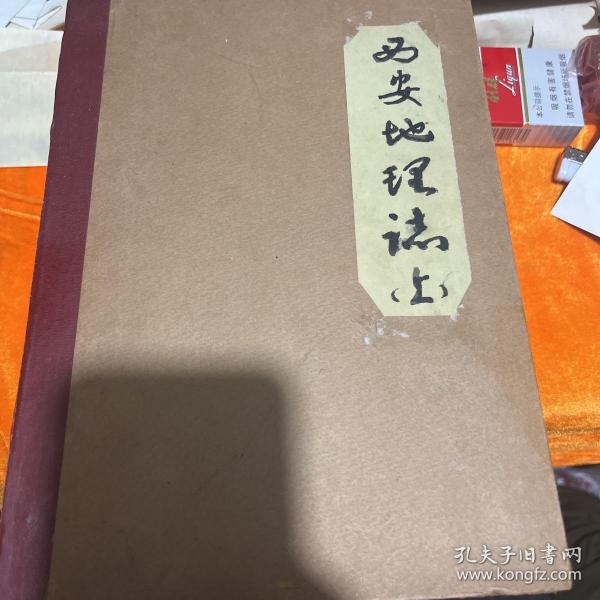 西安地理誌(上)
利群
Liqun
本公司提示
吸烟有害健康
请勿在禁烟场所吸烟
孔夫子旧书网
www.kongfz.com